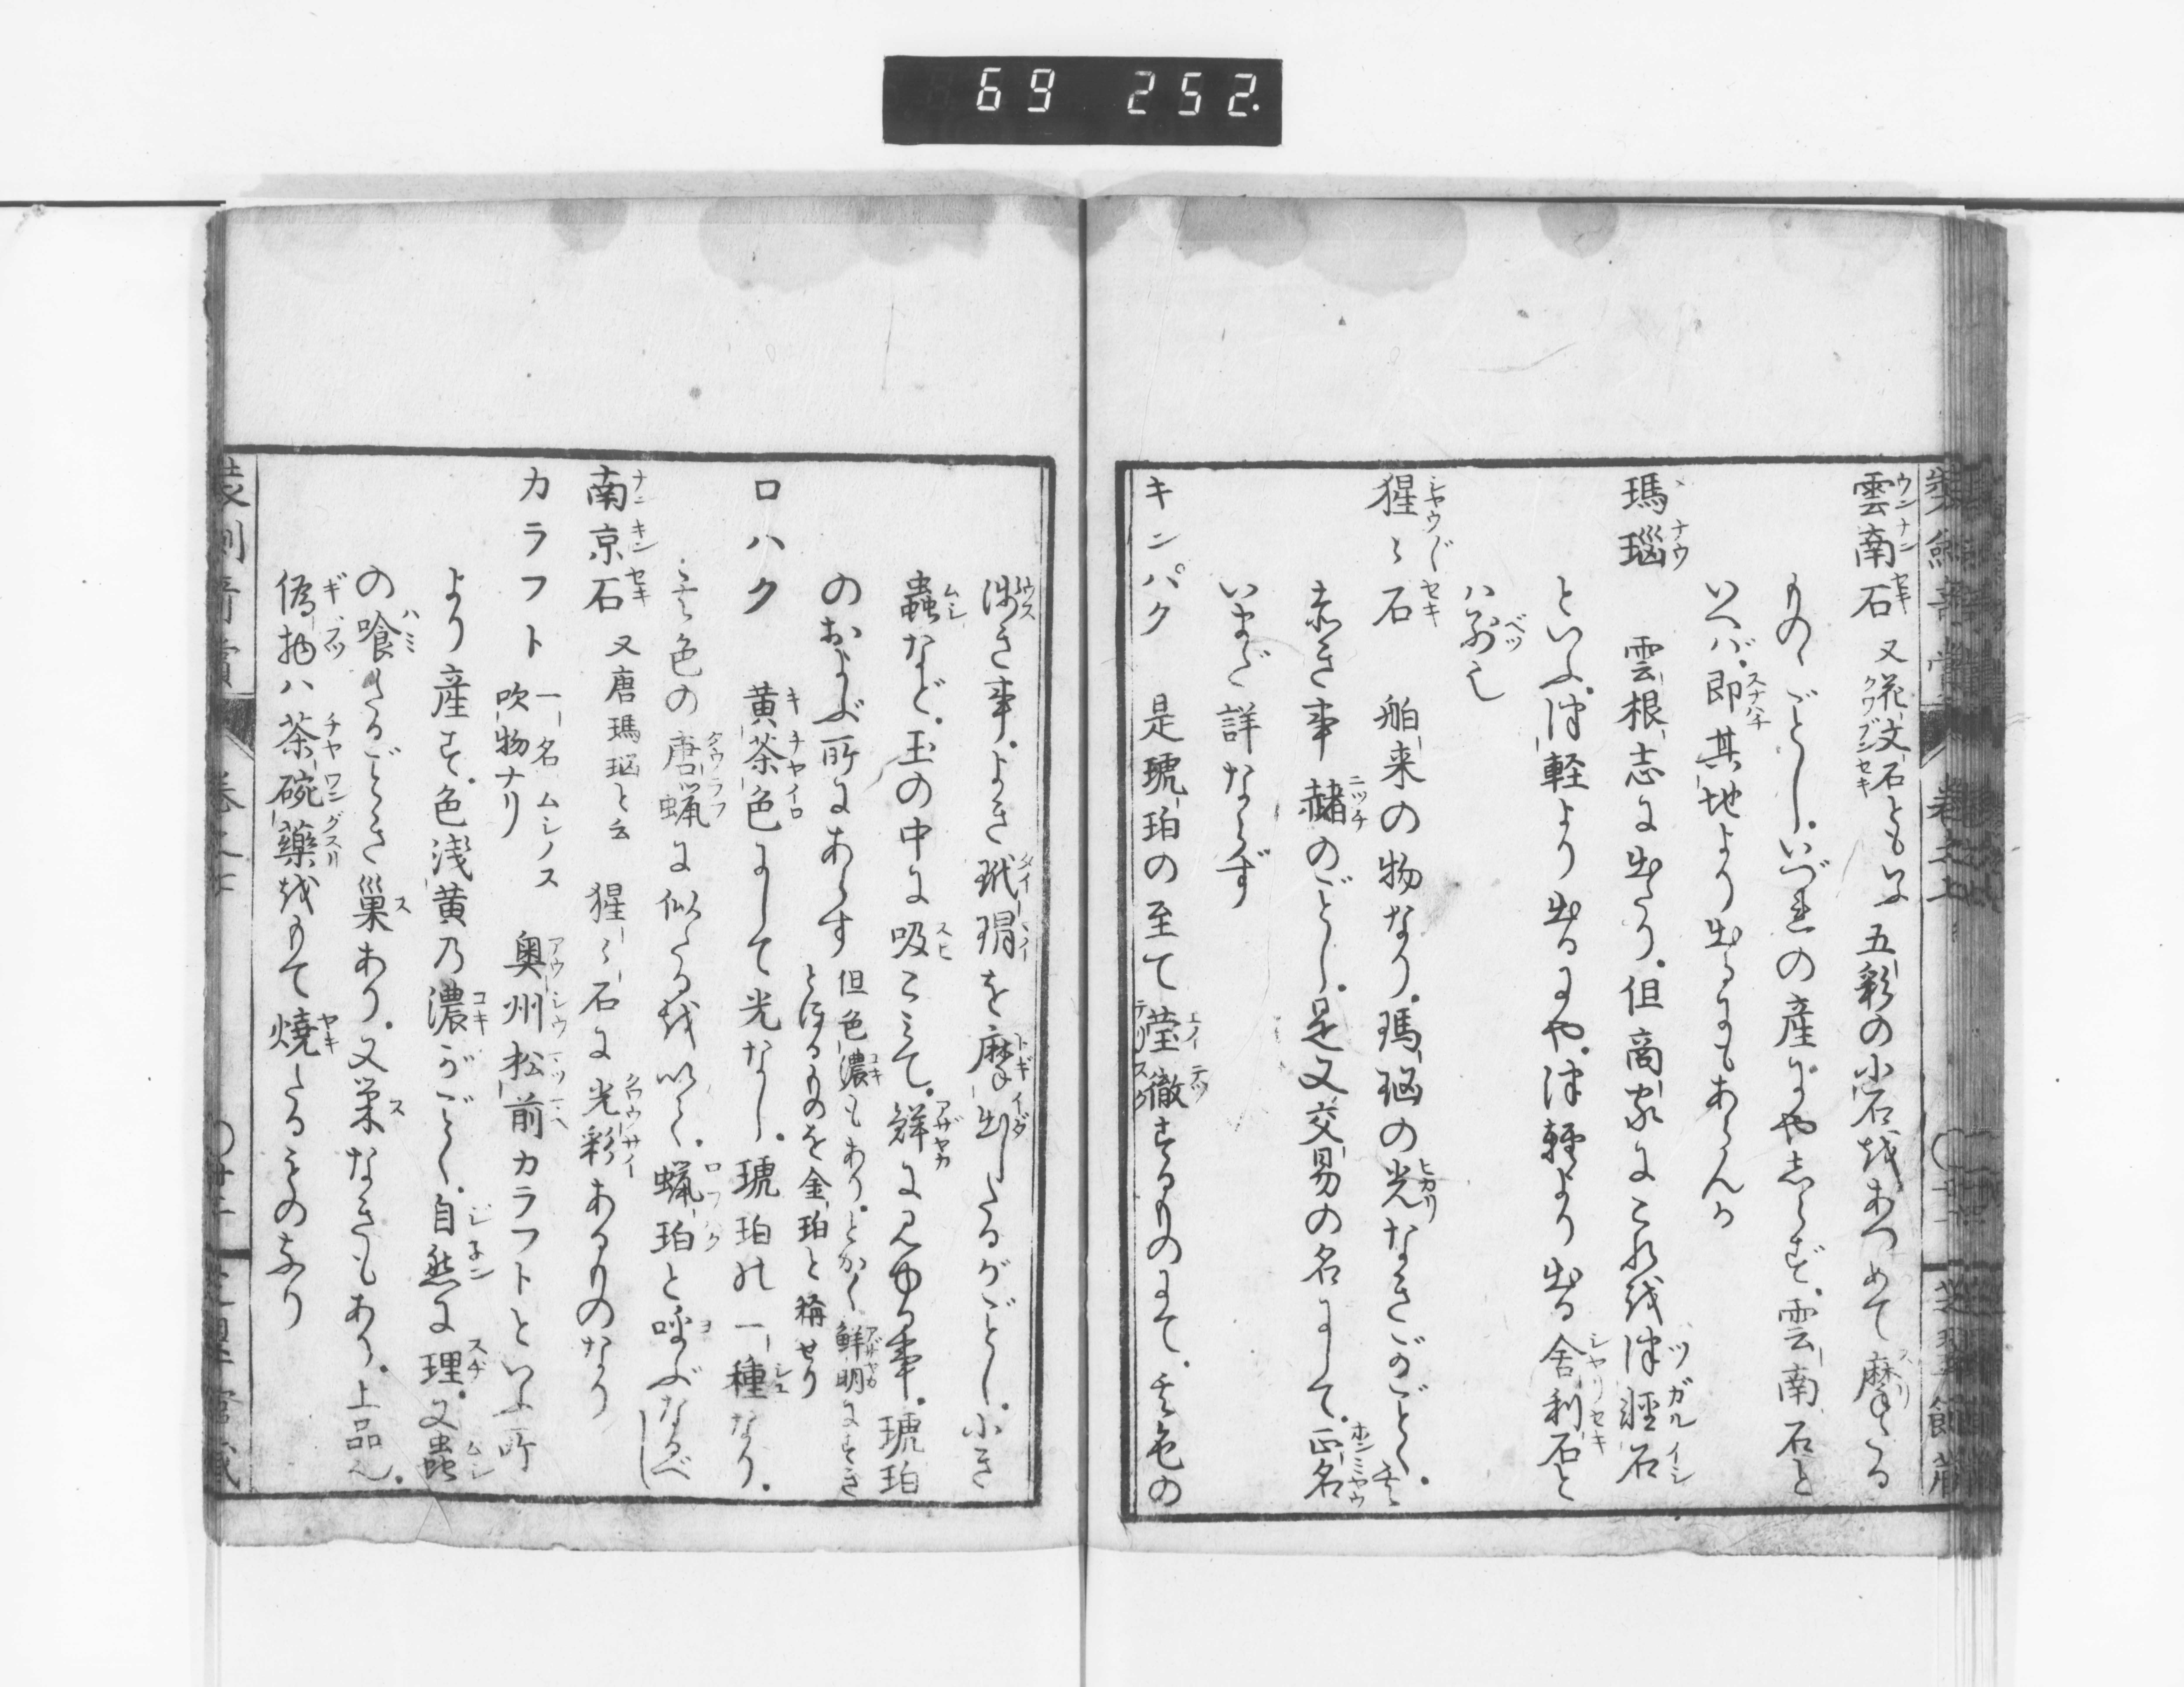 69 252.
雲南石 又花文石ともいふ 五彩の小石をあつめて摩たる
ものゝごとし。いづれの産にや志らず。雲南石と
いへバ。即其地より出るにもあらんか
瑪瑙 雲根志に出たり。但商家にこれを津軽石
といふ。津軽より出るにや。津軽より出る舎利石と
ハ別也
猩々石 舶来の物なり。瑪瑙の光なきがごとく。其
赤き事 赭のごとし。是又交易の名にして。正名
いまだ詳ならず
キンパク 是琥珀の至て瑩徹するものにて。其色の
浅き事。よき玳瑁を摩出したるがごとし。小き
蟲など。玉の中に吸こみて。鮮に見ゆる事。琥珀
のおよぶ所にあらす 但色濃もあり。とかく鮮明にすき
とほるものを金珀と稱せり
ロハク 黄茶色にして光なし。琥珀の一種なり。
其色の唐蝋に似たるを以て。蝋珀と呼ぶなるべし
南京石 又唐瑪瑙と云 猩々石に光彩あるものなり
カラフト 一名ムシノス 吹物ナリ 奥州松前カラフトといふ所
より産す。色浅黄の濃がごとく。自然に理。又蟲
の喰たるごとき巣あり。又巣なきもあり。上品也。
偽物ハ茶碗藥をもて焼たるものなり